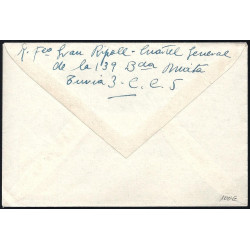 R. Fco Gran Ripoll - Cuartel General
de la 139 Bda Mixta
3 - C. C. 5